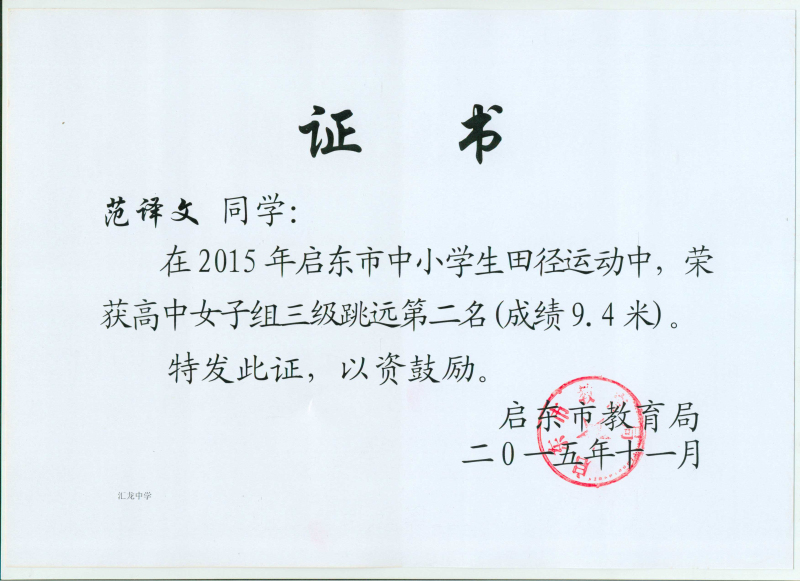 证书
范译文 同学：
在2015年启东市中小学生田径运动中，荣
获高中女子组三级跳远第二名(成绩9.4米)。
特发此证，以资鼓励。
启东市教育局
二0一五年十一月
启东市教育局
汇龙中学